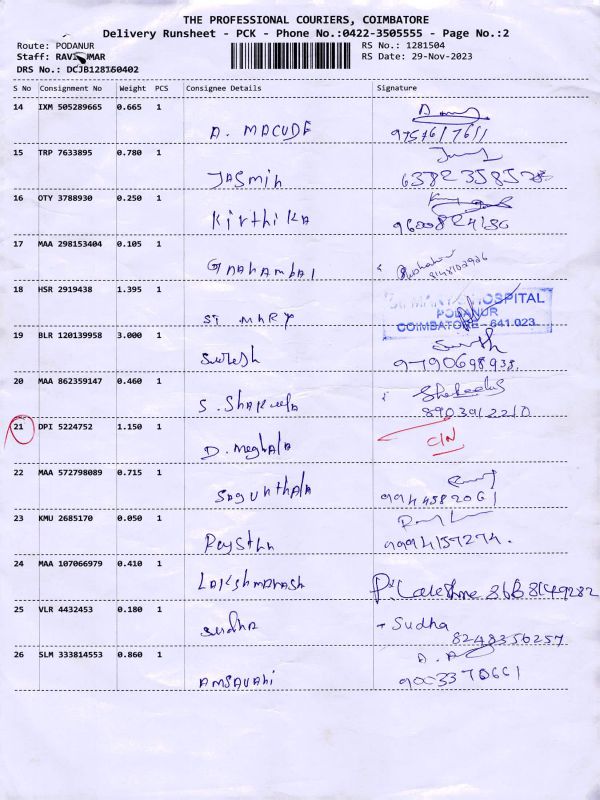 THE PROFESSIONAL COURIERS, COIMBATORE
Delivery Runsheet - PCK - Phone No.:0422-3505555 - Page No.:2
Route: PODANUR RS No.: 1281504
Staff: RAVIKUMAR RS Date: 29-Nov-2023
DRS No.: DCJB128160402
S No Consignment No Weight PCS Consignee Details Signature
14 IXM 505289665 0.665 1
A. MACUDE
15 TRP 7633895 0.780 1
JASmih 6382358578
16 OTY 3788930 0.250 1
Kirthika 9600824186
17 MAA 298153404 0.105 1
Gnahambal 8148102926
18 HSR 2919438 1.395 1
ST MARY ST. MARY'S HOSPITAL
PODANUR
COIMBATORE - 641 023.
19 BLR 120139958 3.000 1
Suresh 9790698938.
20 MAA 862359147 0.460 1
S. Shakeela 8903912210
21 DPI 5224752 1.150 1
D. meghala C/N
22 MAA 572798089 0.715 1
Sagunthala 9944582061
23 KMU 2685170 0.050 1
9994157274.
24 MAA 107066979 0.410 1
25 VLR 4432453 0.180 1
Sudha Sudha
8248356257
26 SLM 333814553 0.860 1
AMSAVAhi 9003370661